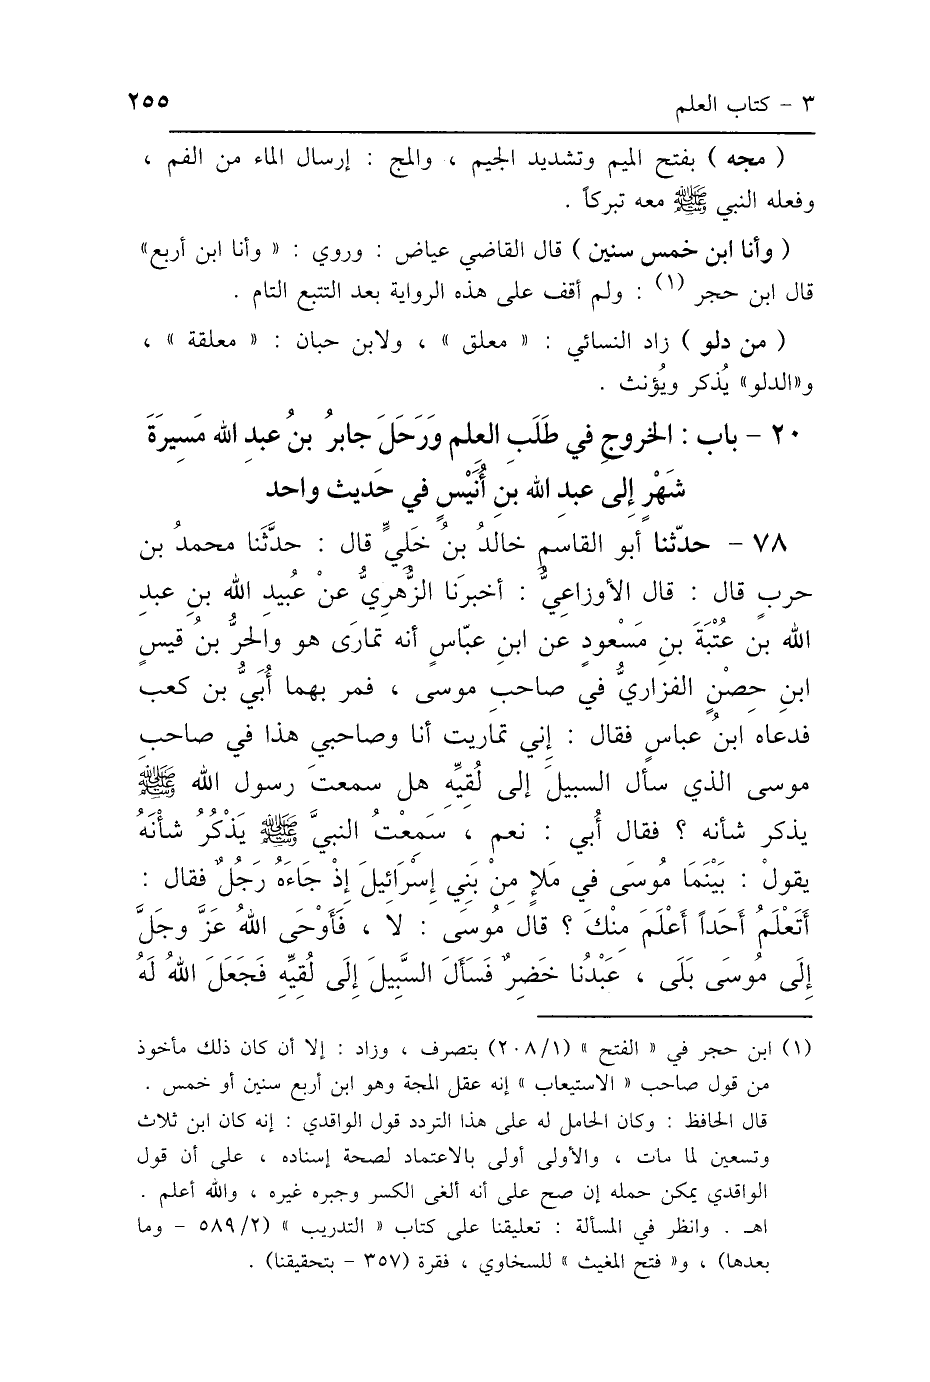 ٣ - كتاب العلم ٢٥٥
( مجه ) بفتح الميم وتشديد الجيم ، والمج : إرسال الماء من الفم ،
وفعله النبي ﷺ معه تبركاً .
( وأنا ابن خمس سنين ) قال القاضي عياض : وروي : « وأنا ابن أربع»
قال ابن حجر (١) : ولم أقف على هذه الرواية بعد التتبع التام .
( من دلو ) زاد النسائي : « معلق » ، ولابن حبان : « معلقة » ،
و«الدلو» يُذكر ويُؤنث .
٢٠ - باب : الخروجِ في طَلَبِ العلم وَرَحَلَ جابرُ بنُ عبدِ الله مَسِيرَةَ
شَهْرٍ إلى عبدِ الله بنِ أُنَيْسٍ في حَديث واحد
٧٨ - حدّثنا أبو القاسمِ خالدُ بنُ خَلِيٍّ قال : حدَّثَنا محمدُ بن
حربٍ قال : قال الأوزاعِيُّ : أخبرَنا الزُّهرِيُّ عنْ عُبيدِ الله بنِ عبدِ
الله بن عُتْبَةَ بنِ مَسْعودٍ عن ابنِ عبّاسٍ أنه تمارَى هو والحرُّ بنُ قيسٍ
ابنِ حِصْنٍ الفزاريُّ في صاحبِ موسى ، فمر بهما أُبَيُّ بن كعب
فدعاه ابنُ عباسٍ فقال : إني تماريت أنا وصاحبي هذا في صاحبِ
موسى الذي سأل السبيلَ إلى لُقيِّه هل سمعتَ رسول الله ﷺ
يذكر شأنه ؟ فقال أُبي : نعم ، سَمِعْتُ النبيَّ ﷺ يَذْكُرُ شأْنَهُ
يقولُ : بَيْنَمَا مُوسَى في مَلإٍ مِنْ بَنِي إسْرَائِيلَ إذْ جَاءَهُ رَجُلٌ فقال :
أَتَعْلَمُ أحَداً أعْلَمَ مِنْكَ ؟ قال مُوسَى : لا ، فَأَوْحَى اللهُ عَزَّ وجَلَّ
إلَى مُوسَى بَلَى ، عَبْدُنا خَضِرٌ فَسَأَلَ السَّبِيلَ إلَى لُقِيِّهِ فَجَعَلَ اللهُ لَهُ
(١) ابن حجر في « الفتح » (٢٠٨/١) بتصرف ، وزاد : إلا أن كان ذلك مأخوذ
من قول صاحب « الاستيعاب » إنه عقل المجة وهو ابن أربع سنين أو خمس .
قال الحافظ : وكان الحامل له على هذا التردد قول الواقدي : إنه كان ابن ثلاث
وتسعين لما مات ، والأولى أولى بالاعتماد لصحة إسناده ، على أن قول
الواقدي يمكن حمله إن صح على أنه ألغى الكسر وجبره غيره ، والله أعلم .
اهـ . وانظر في المسألة : تعليقنا على كتاب « التدريب » (٥٨٩/٢ - وما
بعدها) ، و« فتح المغيث » للسخاوي ، فقرة (٣٥٧ - بتحقيقنا) .